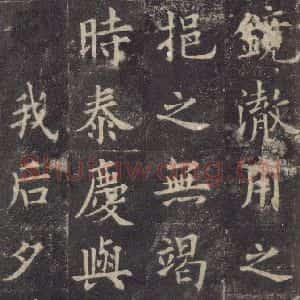 鏡澈用之
挹之無竭
時泰慶與
我后夕